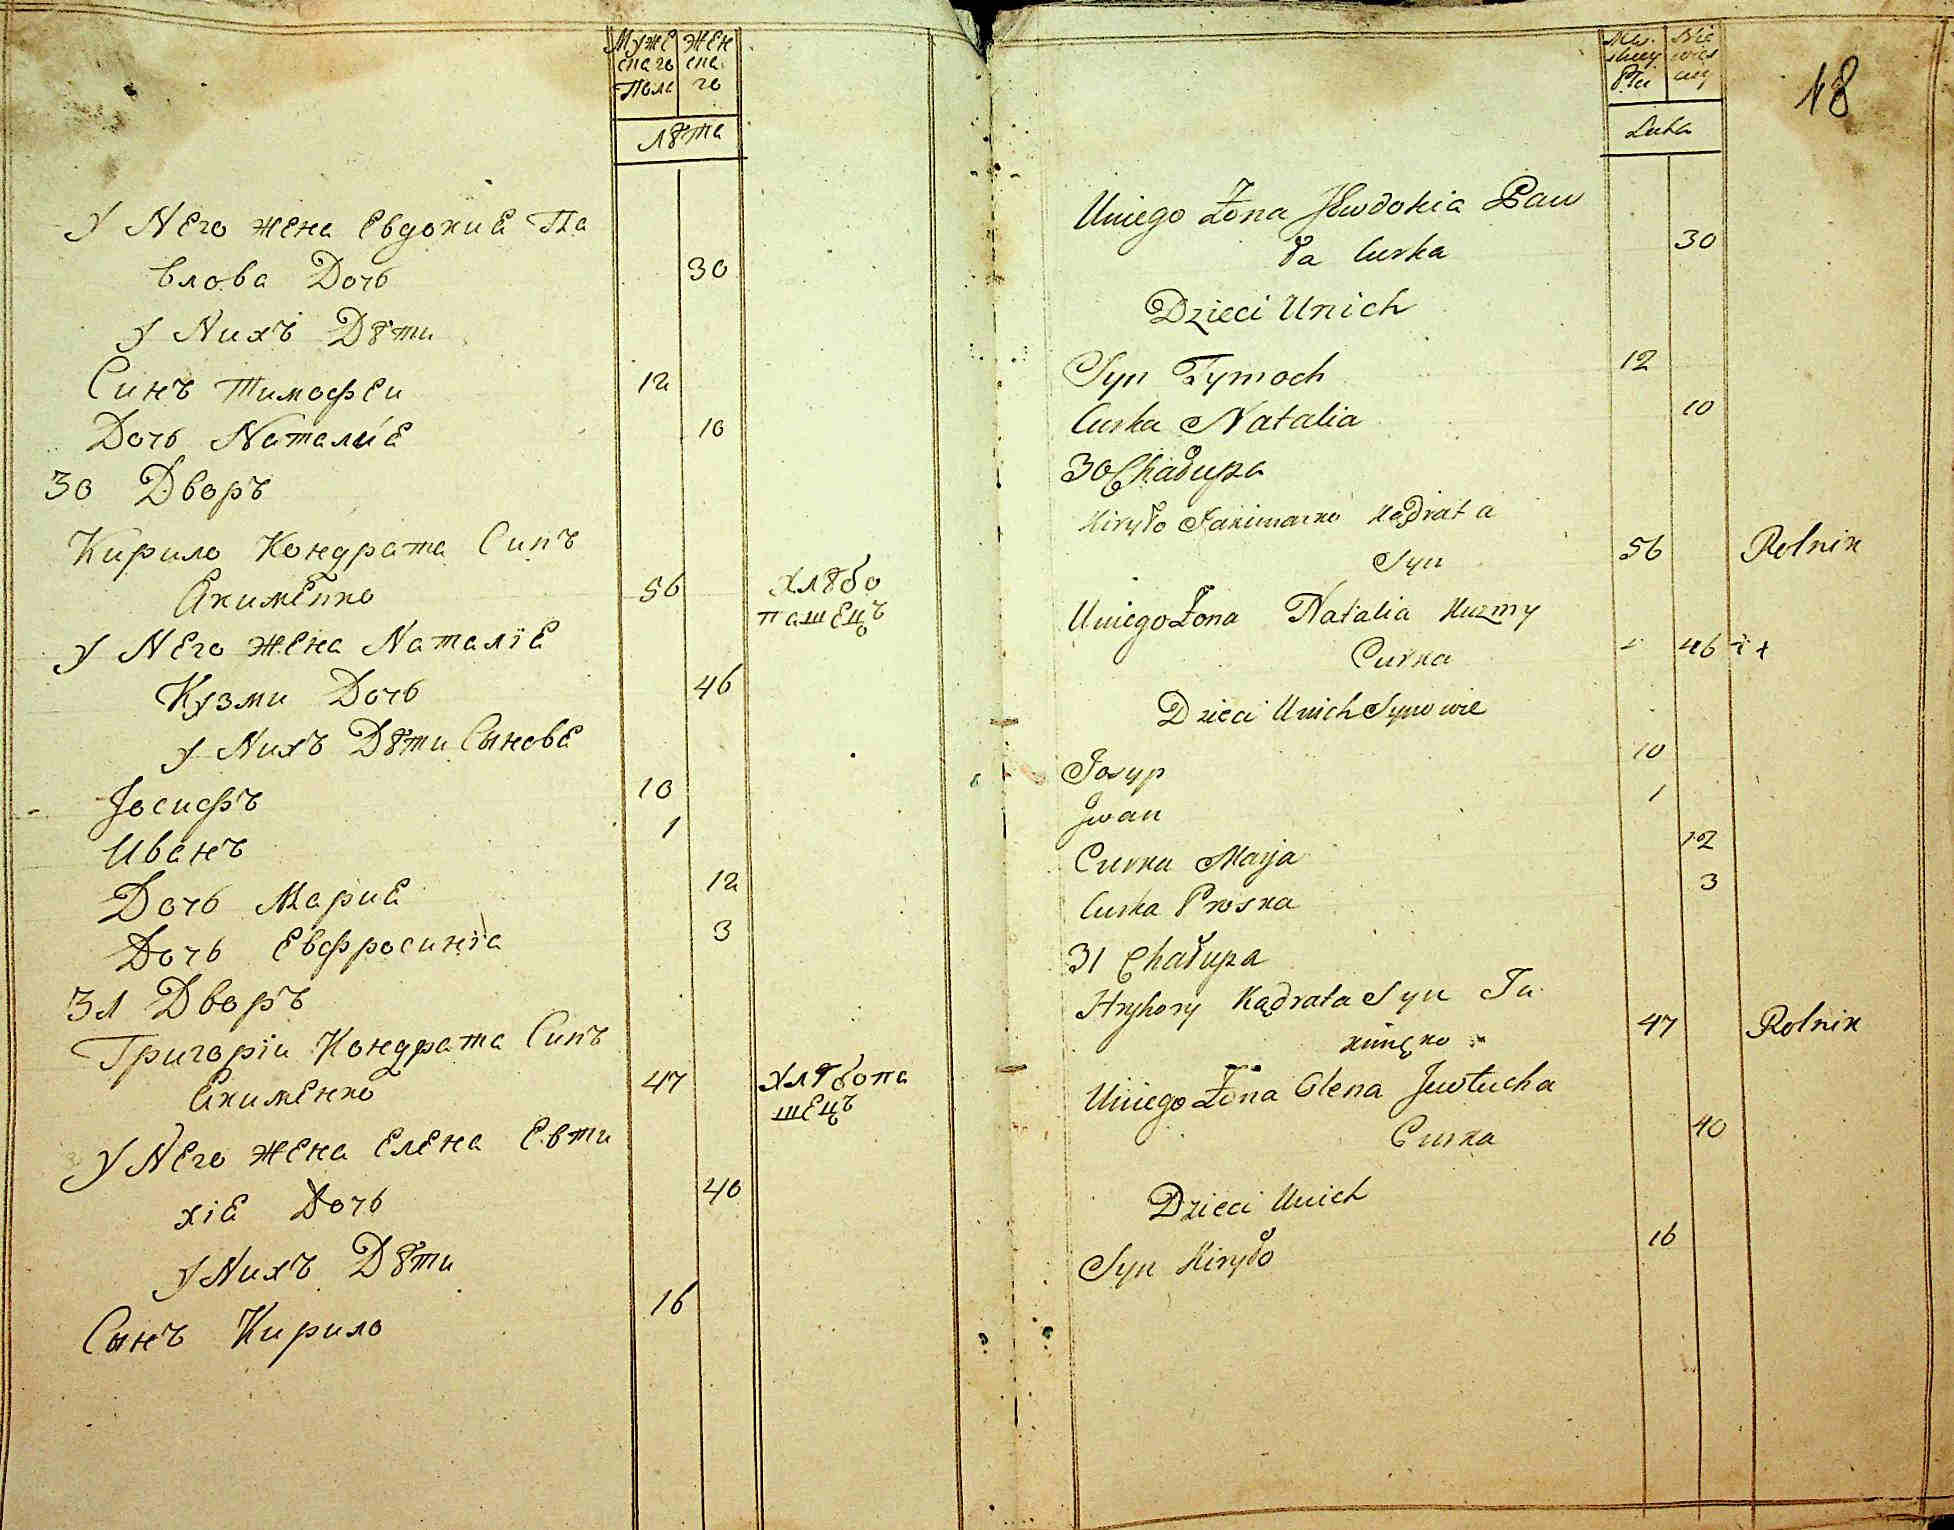 Муже Жен
скаго ска
Пола го
лѣта
У Него жена Евдокиѣ Па
влова Дочь
30
у Нихъ Дѣти
Синъ Тимофеи 12
Дочь Наталиѣ 10
30 Дворъ
Кирило Кондрата Синъ
Якименко 56 Хлѣбо
пашецъ
у Него жена Наталіѣ
Кузми Дочь 46
у Нихъ Дѣти Сыновѣ
Іосифъ 10
Иванъ 1
Дочь Мариѣ 12
Дочь Евфросинія 3
31 Дворъ
Григоріи Кондрата Синъ
Якименко 47 хлѣбопа
шецъ
У Него жена Елена Евти
хіѣ Дочь 40
у Нихъ Дѣти
Сынъ Кирило 16
18
Mes Nie
skiey wies
Płci ciey
Lata
Uniego Żona Jewdokia Paw
ła Curka 30
Dzieci Unich
Syn Tymoch 12
Curka Natalia 10
30 Chałupa
Kiryło Jakimenko Kądrata
Syn 56 Rolnik
Uniego Żona Natalia Kuzmy
Curka 46
Dzieci Unich Synowie
Josyp 10
Jwan 1
Curka Marja 12
Curka Proska 3
31 Chałupa
Hryhory Kądrata Syn Ja
kimęko 47 Rolnik
Uniego Żona Olena Jewtucha
Curka 40
Dzieci Unich
Syn Kiryło 16